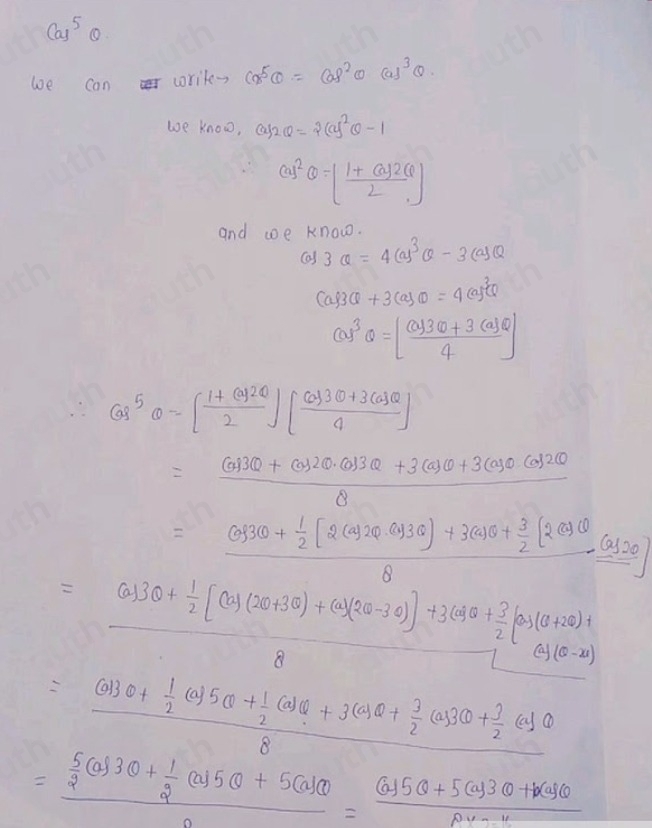 Cos⁵ θ.
We can write → Cos⁵θ = Cos²θ Cos³θ.
We know, Cos2θ = 2Cos²θ - 1
∴ Cos²θ = [(1 + Cos2θ)/2]
and we know.
Cos 3θ = 4Cos³θ - 3Cosθ
Cos3θ + 3Cosθ = 4Cos³θ
Cos³θ = [(Cos3θ + 3Cosθ)/4]
∴ Cos⁵θ = [(1 + Cos2θ)/2] [(Cos3θ + 3Cosθ)/4]
= (Cos3θ + Cos2θ·Cos3θ + 3Cosθ + 3Cosθ·Cos2θ)/8
= (Cos3θ + 1/2 [2Cos2θ·Cos3θ] + 3Cosθ + 3/2 [2Cosθ·Cos2θ])/8
= (Cos3θ + 1/2 [Cos(2θ+3θ) + Cos(2θ-3θ)] + 3Cosθ + 3/2 [Cos(θ+2θ) + Cos(θ-2θ)/8
= (Cos3θ + 1/2 Cos5θ + 1/2 Cosθ + 3Cosθ + 3/2 Cos3θ + 3/2 Cosθ)/8
= (5/2 Cos3θ + 1/2 Cos5θ + 5Cosθ)/8 = (Cos5θ + 5Cos3θ + 10Cosθ)/